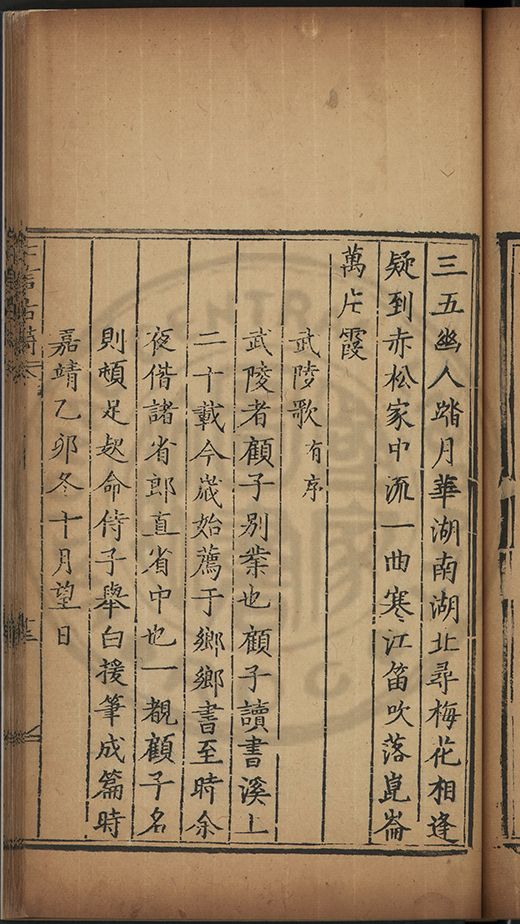 三五幽人踏月華湖南湖北尋梅花相逢
疑到赤松家中流一曲寒江笛吹落崑崙
萬片霞
武陵歌有序
武陵者顧子別業也顧子讀書溪上
二十載今歲始薦于鄉鄉書至時余
夜偕諸省郎直省中也一覩顧子名
則頓足起命侍子舉白援筆成篇時
嘉靖乙卯冬十月望日